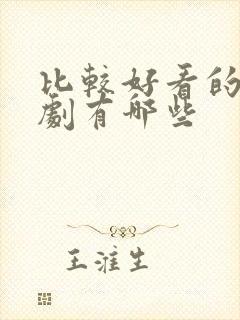 比較好看的
劇有哪些
王淮生